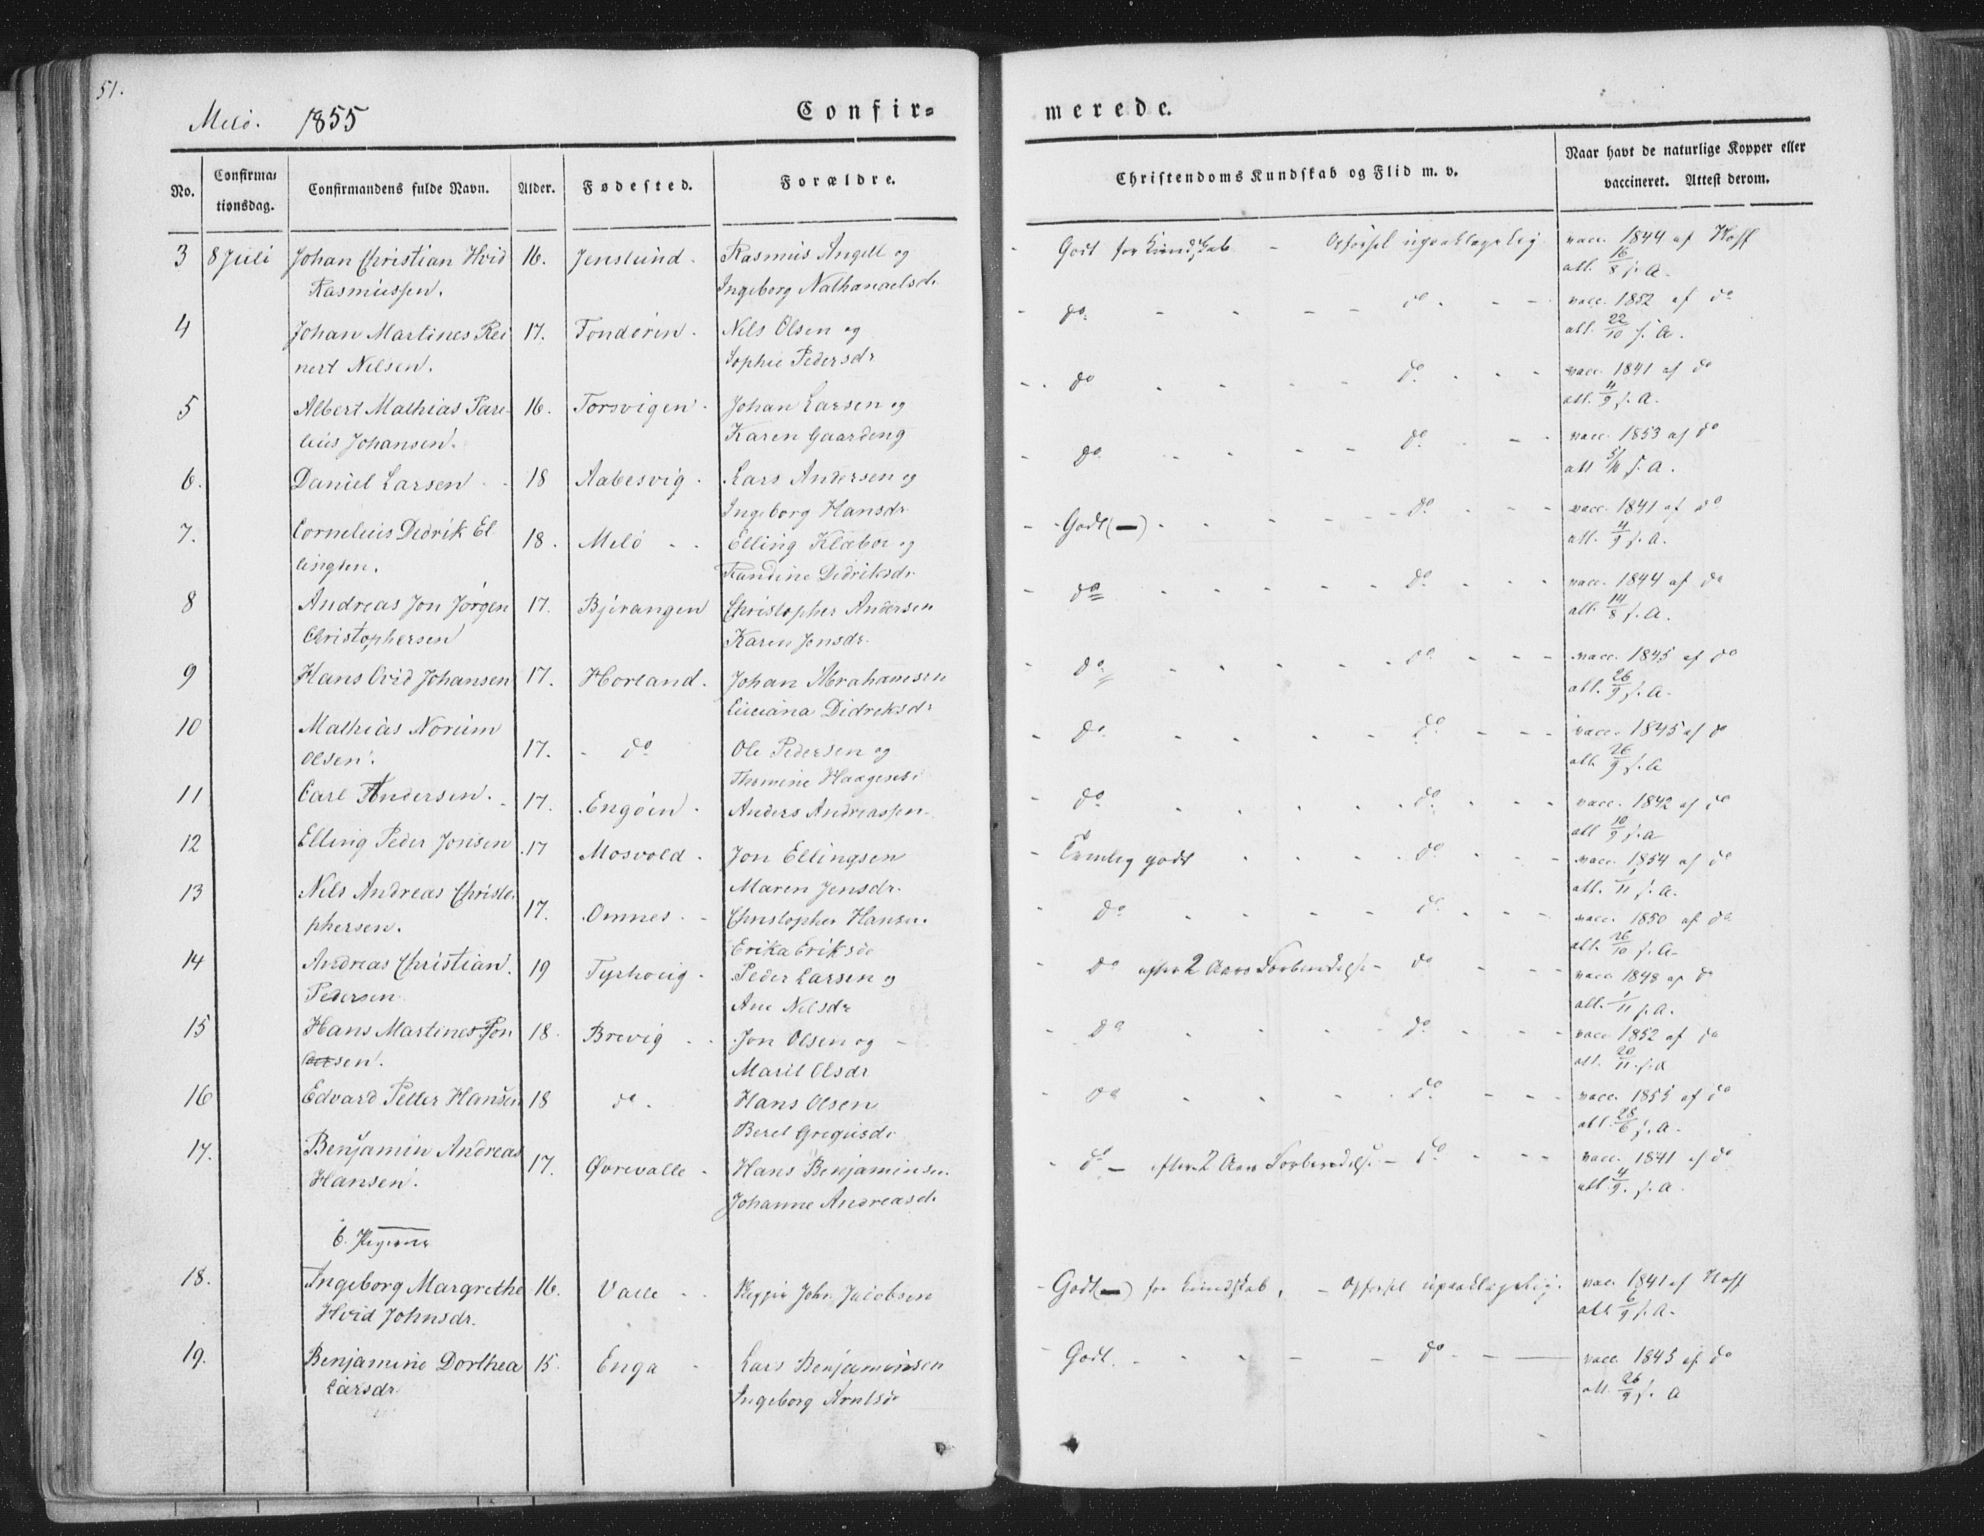 51.
Melö. 1855 Confir= merede.
No. Confirma= tionsdag. Confirmandens fulde Navn. Alder. Fødested. Forældre. Christendoms Kundskab og Flid m. v. Naar havt de naturlige Kopper eller vaccineret. Attest derom.
3 8 Juli Johan Christian Hvid 16. Jenslund. Rasmus Angell og Godt for Kundskab - Opförsel upaaklagelig vacc. 1844 af Hoff
Rasmussen. Ingeborg Nathanaelsd. att. 16/8 s. A.
4 Johan Martines Rei 17. Tonderen. Nils Olsen og do. do. vacc. 1852 af do
nert Nilsen. Sophie Pedersdr att. 22/10 s. A.
5 Albert Mathias Pare 16. Torsvigen. Johan Larsen og do do. vacc. 1841 af do
lius Johansen. Karen Gaardeng att. 4/9 s. A.
6. Daniel Larsen 18 Aabesvig. Lars Andersen og do. do. vacc. 1853 af do
Ingeborg Hansdr att. s. A.
7. Cornelius Dedrik El 18. Melö Elling Klæboe og Godt (—) do. vacc. 1841 af do
lingsen. Randine Didriksdr att. 4/9 s. A.
8 Andreas Jon Jörgen 17. Bjerangen Christopher Andersen do do. vacc. 1844 af do
Christophersen Karen Jonsdr. att. 14/8 s. A.
9 Hans Ovid Johansen 17. Horland. Johan Abrahamsen do. do. vacc. 1845 af do
Luciana Didreksdr att. 26/9 s. A.
10 Mathias Norum 17. do Ole Pedersen og do. do. vacc. 1845 af do
Olsen. Thomine Haagens. att. 26/9 s. A
11 Carl Andersen. 17. Engöen. Anders Andreassen. do. do. vacc. 1842 af do
att 10/9 s. A
12 Elling Peder Jonsen 17 Mosvold. Jon Ellingsen Temlig godt do. vacc. 1854 af do
Maren Jensdr. att. 1/11 s. A.
13 Nils Andreas Christo 17. Omnes. Christopher Hansen. do do. vacc. 1850 af do
phersen. Erika Eriksd att. 26/10 s. A.
14 Andreas Christian 19 Peder Larsen og do efter 2 Aars Forberedelse - do vacc. 1848 af do
Pedersen Ane Nilsdr att. 1/11 s. A.
15 Hans Martines Jon 18. Brevig Jon Olsen og do do. vacc. 1852 af do
sen. Marit Olsdr att. 20/11 s. A
16 Edvard Petter Hansen 18 do. Hans Olsen do do. vacc. 1855 af do
Beret Gregusd. att. 28/6 s. A.
17. Benjamin Andreas 17. Övrevalle Hans Benjaminsen. do - efter 2 Aars Forberedelse - do. vacc. 1841 af do
Hansen. Johanne Andreasd. att. 4/9. s. A.
b. Pigerne
18. Ingeborg Margrethe 16. Valle Johs. Jacobsen Godt (—) for Kundskab, - Opförsel upaaklagelig. vac. 1841 af Hoff
Hvid Johnsdr. att. 6/9 s. A.
19. Benjamine Dorthea 15. Enga Lars Benjaminsen Godt. do vacc. 1845 af do
Larsdr Ingeborg Arntsd att. 26/9 s. A